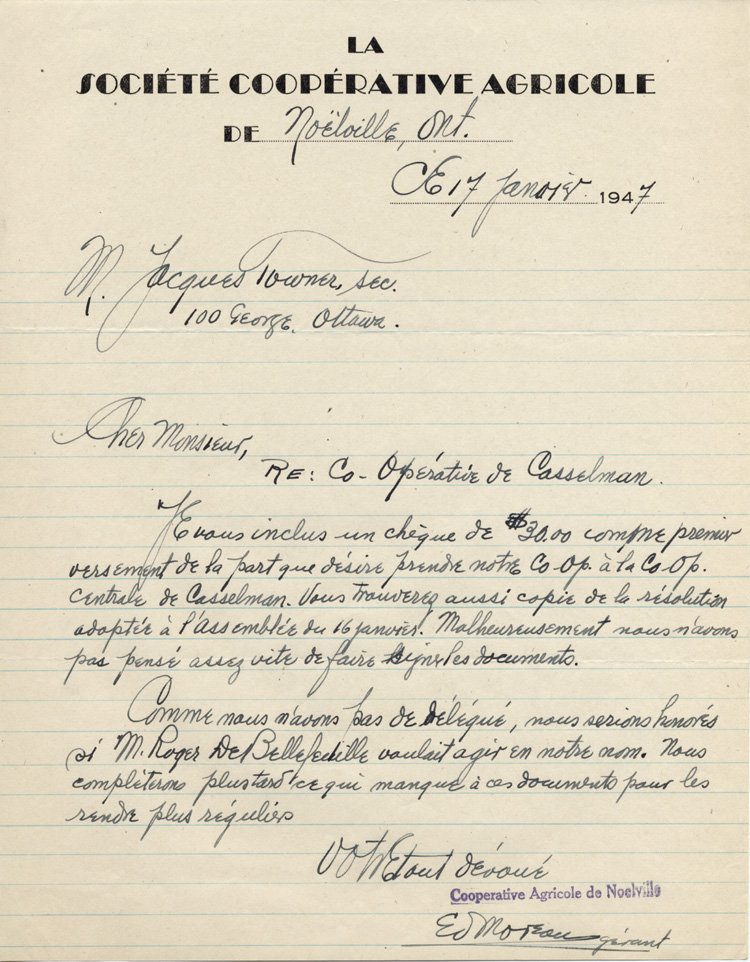 LA
SOCIÉTÉ COOPÉRATIVE AGRICOLE
DE Noëlville, Ont.
CE 17 Janvier 1947
M. Jacques Towner, sec.
100 George. Ottawa.
Cher Monsieur,
RE: Co-Opérative de Casselman.
JE vous inclus un chèque de $30.00 comme premier
versement de la part que désire prendre notre Co-Op. à la Co-Op.
Centrale de Casselman. Vous trouverez aussi copie de la résolution
adoptée à l'Assemblée du 16 janvier. Malheureusement nous n'avons
pas pensé assez vite de faire signer les documents.
Comme nous n'avons pas de délégué, nous serions honorés
si M. Roger De Bellefeuille voulait agir en notre nom. Nous
compléterons plus tard ce qui manque à ces documents pour les
rendre plus réguliers
Votre tout dévoué
Cooperative Agricole de Noelville
Ed Moreau gérant